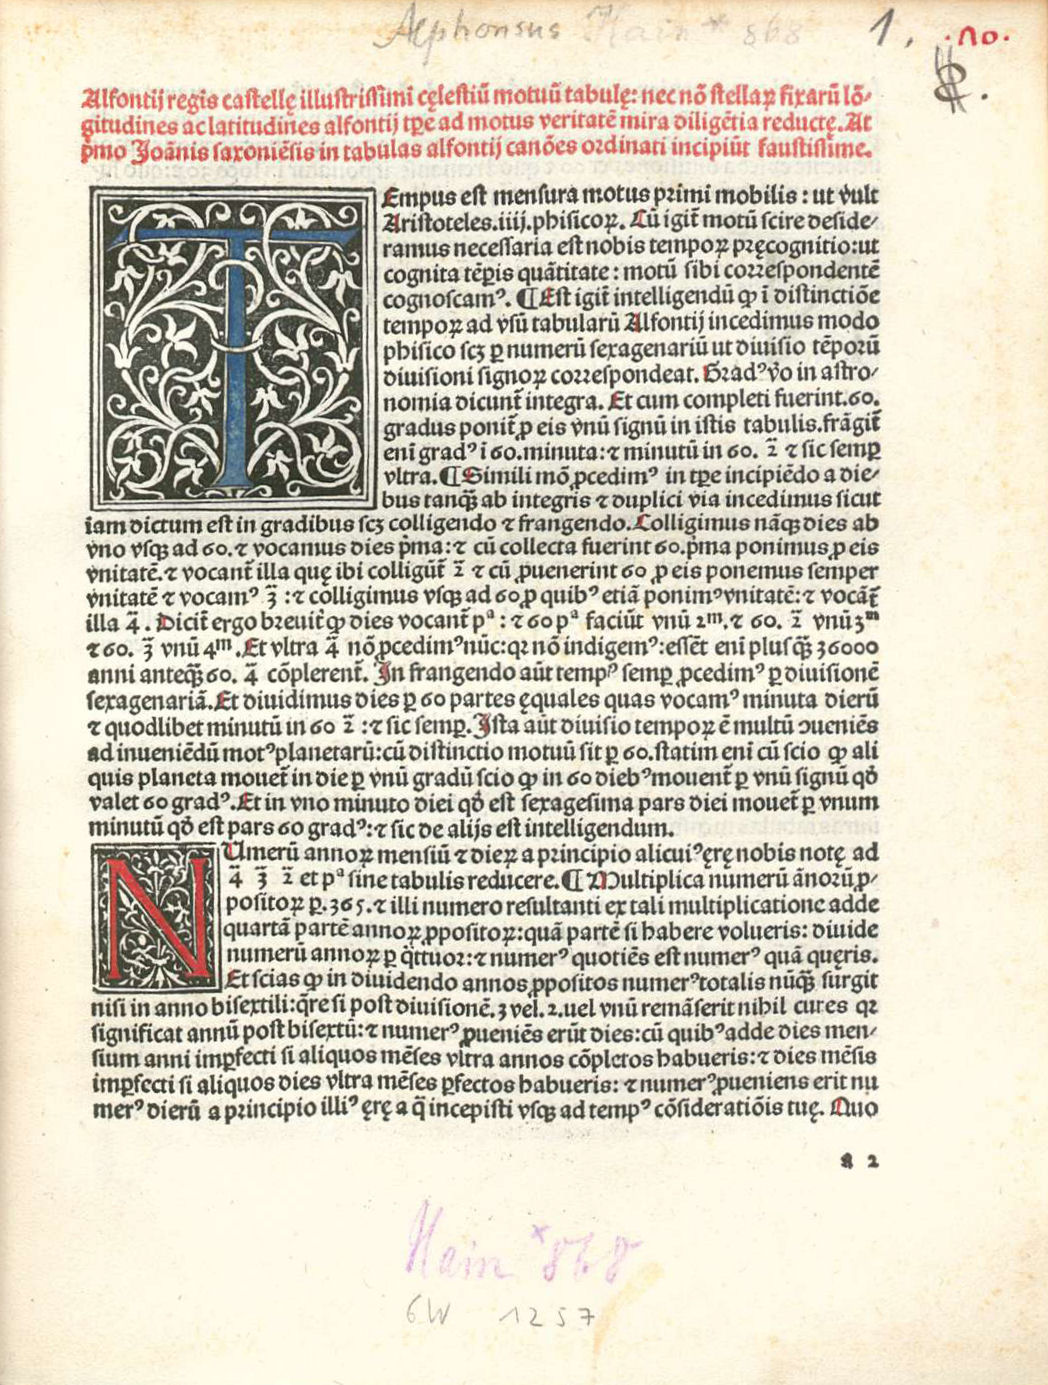 Alphonsus Hain * 868 1. ·no·
Alfontij regis castellę illustrissimi cęlestiū motuū tabulę: nec nō stellaꝝ fixarū lō-
gitudines ac latitudines alfontij tp̄e ad motus veritatē mira diligētia reductę. At
p̄mo Joānis saxoniēsis in tabulas alfontij canōes ordinati incipiūt faustissime.
TEmpus est mensura motus primi mobilis: ut vult
Aristoteles.iiij.phisicoꝝ. Cū igit̄ motū scire deside-
ramus necessaria est nobis tempoꝝ pręcognitio: ut
cognita tēꝑis quātitate: motū sibi correspondentē
cognoscamꝰ. ¶ Est igit̄ intelligendū ꝙ ī distinctiōe
tempoꝝ ad vsū tabularū Alfontij incedimus modo
phisico scꝫ ꝑ numerū sexagenariū ut diuisio tēporū
diuisioni signoꝝ correspondeat. Gradꝰ vo in astro-
nomia dicunt̄ integra. Et cum completi fuerint.60.
gradus ponit̄ ꝓ eis vnū signū in istis tabulis.frāgit̄
eni gradꝰ ī 60.minuta: ⁊ minutū in 60. 2̄ ⁊ sic semꝑ
vltra. ¶ Simili mō ꝓcedimꝰ in tp̄e incipiēdo a die-
bus tanꝙ̄ ab integris ⁊ duplici via incedimus sicut
iam dictum est in gradibus scꝫ colligendo ⁊ frangendo. Colligimus nāqꝫ dies ab
vno vsqꝫ ad 60. ⁊ vocamus dies p̄ma: ⁊ cū collecta fuerint 60.p̄ma ponimus ꝓ eis
vnitatē. ⁊ vocant̄ illa quę ibi colligūt̄ 2̄ ⁊ cū ꝓuenerint 60 ꝓ eis ponemus semper
vnitatē ⁊ vocamꝰ 3̄ : ⁊ colligimus vsqꝫ ad 60 ꝓ quibꝰ etiā ponimꝰ vnitatē: ⁊ vocāt̄
illa 4̄ . Dicit̄ ergo breuit̄ ꝙ dies vocant̄ pᵃ : ⁊ 60 pᵃ faciūt vnū 2ᵐ. ⁊ 60. 2̄ vnū 3ᵐ
⁊ 60. 3̄ vnū 4ᵐ .Et vltra 4̄ nō ꝓcedimꝰ nūc: qꝛ nō indigemꝰ: essēt eni plusꝙ̄ 36000
anni anteꝙ̄ 60. 4̄ cōplerent̄. In frangendo aūt tempꝰ semꝑ ꝓcedimꝰ ꝑ diuisionē
sexagenariā. Et diuidimus dies ꝑ 60 partes ęquales quas vocamꝰ minuta dierū
⁊ quodlibet minutū in 60 2̄ : ⁊ sic semꝑ. Ista aūt diuisio tempoꝝ ē multū ꝯueniēs
ad inueniēdū motꝰ planetarū: cū distinctio motuū sit ꝑ 60. statim eni cū scio ꝙ ali
quis planeta mouet̄ in die ꝑ vnū gradū scio ꝙ in 60 diebꝰ mouent̄ ꝑ vnū signū qd̄
valet 60 gradꝰ. Et in vno minuto diei qd̄ est sexagesima pars diei mouet̄ ꝑ vnum
minutū qd̄ est pars 60 gradꝰ: ⁊ sic de alijs est intelligendum.
NUmerū annoꝝ mensiū ⁊ dieꝝ a principio alicuiꝰ ęrę nobis notę ad
4̄ 3̄ 2̄ et pᵃ sine tabulis reducere. ¶ Multiplica numerū ānorū ꝓ-
positoꝝ ꝑ .365. ⁊ illi numero resultanti ex tali multiplicatione adde
quartā partē annoꝝ ꝓpositoꝝ: quā partē si habere volueris: diuide
numerū annoꝝ ꝑ q̄ttuor: ⁊ numerꝰ quotiēs est numerꝰ quā quęris.
Et scias ꝙ in diuidendo annos ꝓpositos numerꝰ totalis nūꝙ̄ surgit
nisi in anno bisextili: q̄re si post diuisionē. 3 vel. 2. uel vnū remāserit nihil cures qꝛ
significat annū post bisextū: ⁊ numerꝰ ꝓueniēs erūt dies: cū quibꝰ adde dies men-
sium anni imꝑfecti si aliquos mēses vltra annos cōpletos habueris: ⁊ dies mēsis
imꝑfecti si aliquos dies vltra mēses ꝑfectos habueris: ⁊ numerꝰ ꝓueniens erit nu
merꝰ dierū a principio illiꝰ ęrę a q̄ incepisti vsqꝫ ad tempꝰ cōsideratiōis tuę. Quo
a 2
Hain *868
GW 1257